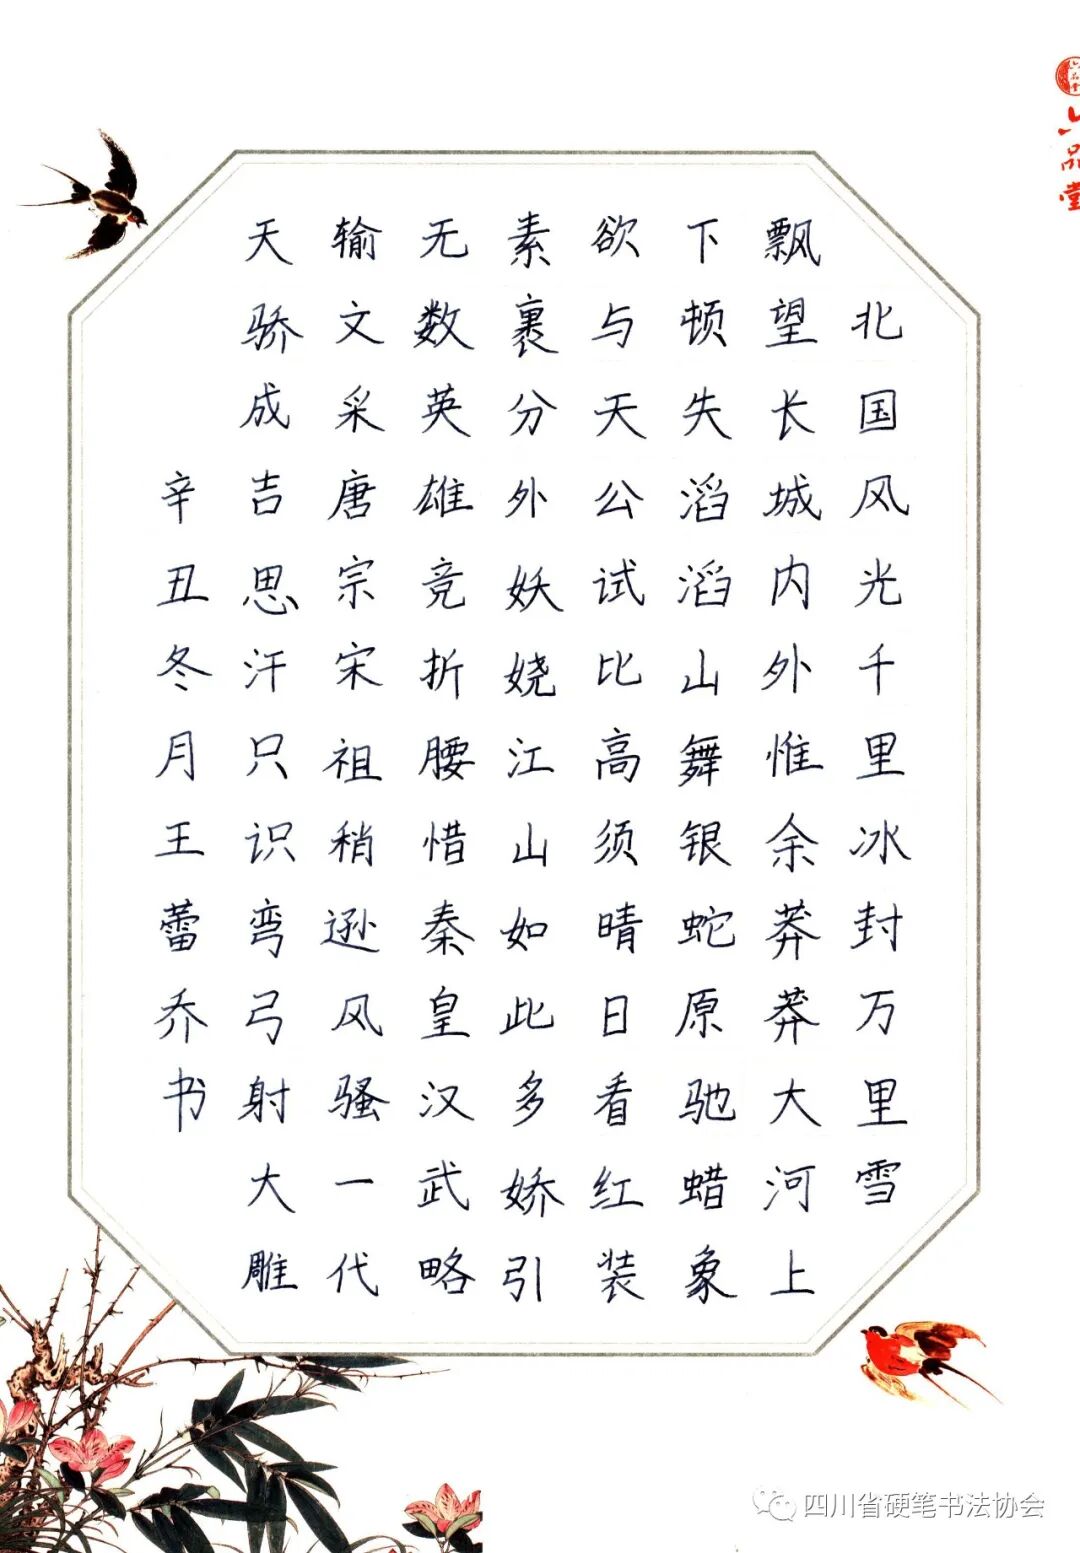 北国风光千里冰封万里雪
飘望长城内外惟余莽莽大河上
下顿失滔滔山舞银蛇原驰蜡象
欲与天公试比高须晴日看红装
素裹分外妖娆江山如此多娇引
无数英雄竞折腰惜秦皇汉武略
输文采唐宗宋祖稍逊风骚一代
天骄成吉思汗只识弯弓射大雕
辛丑冬月王蕾乔书
六品堂
四川省硬笔书法协会